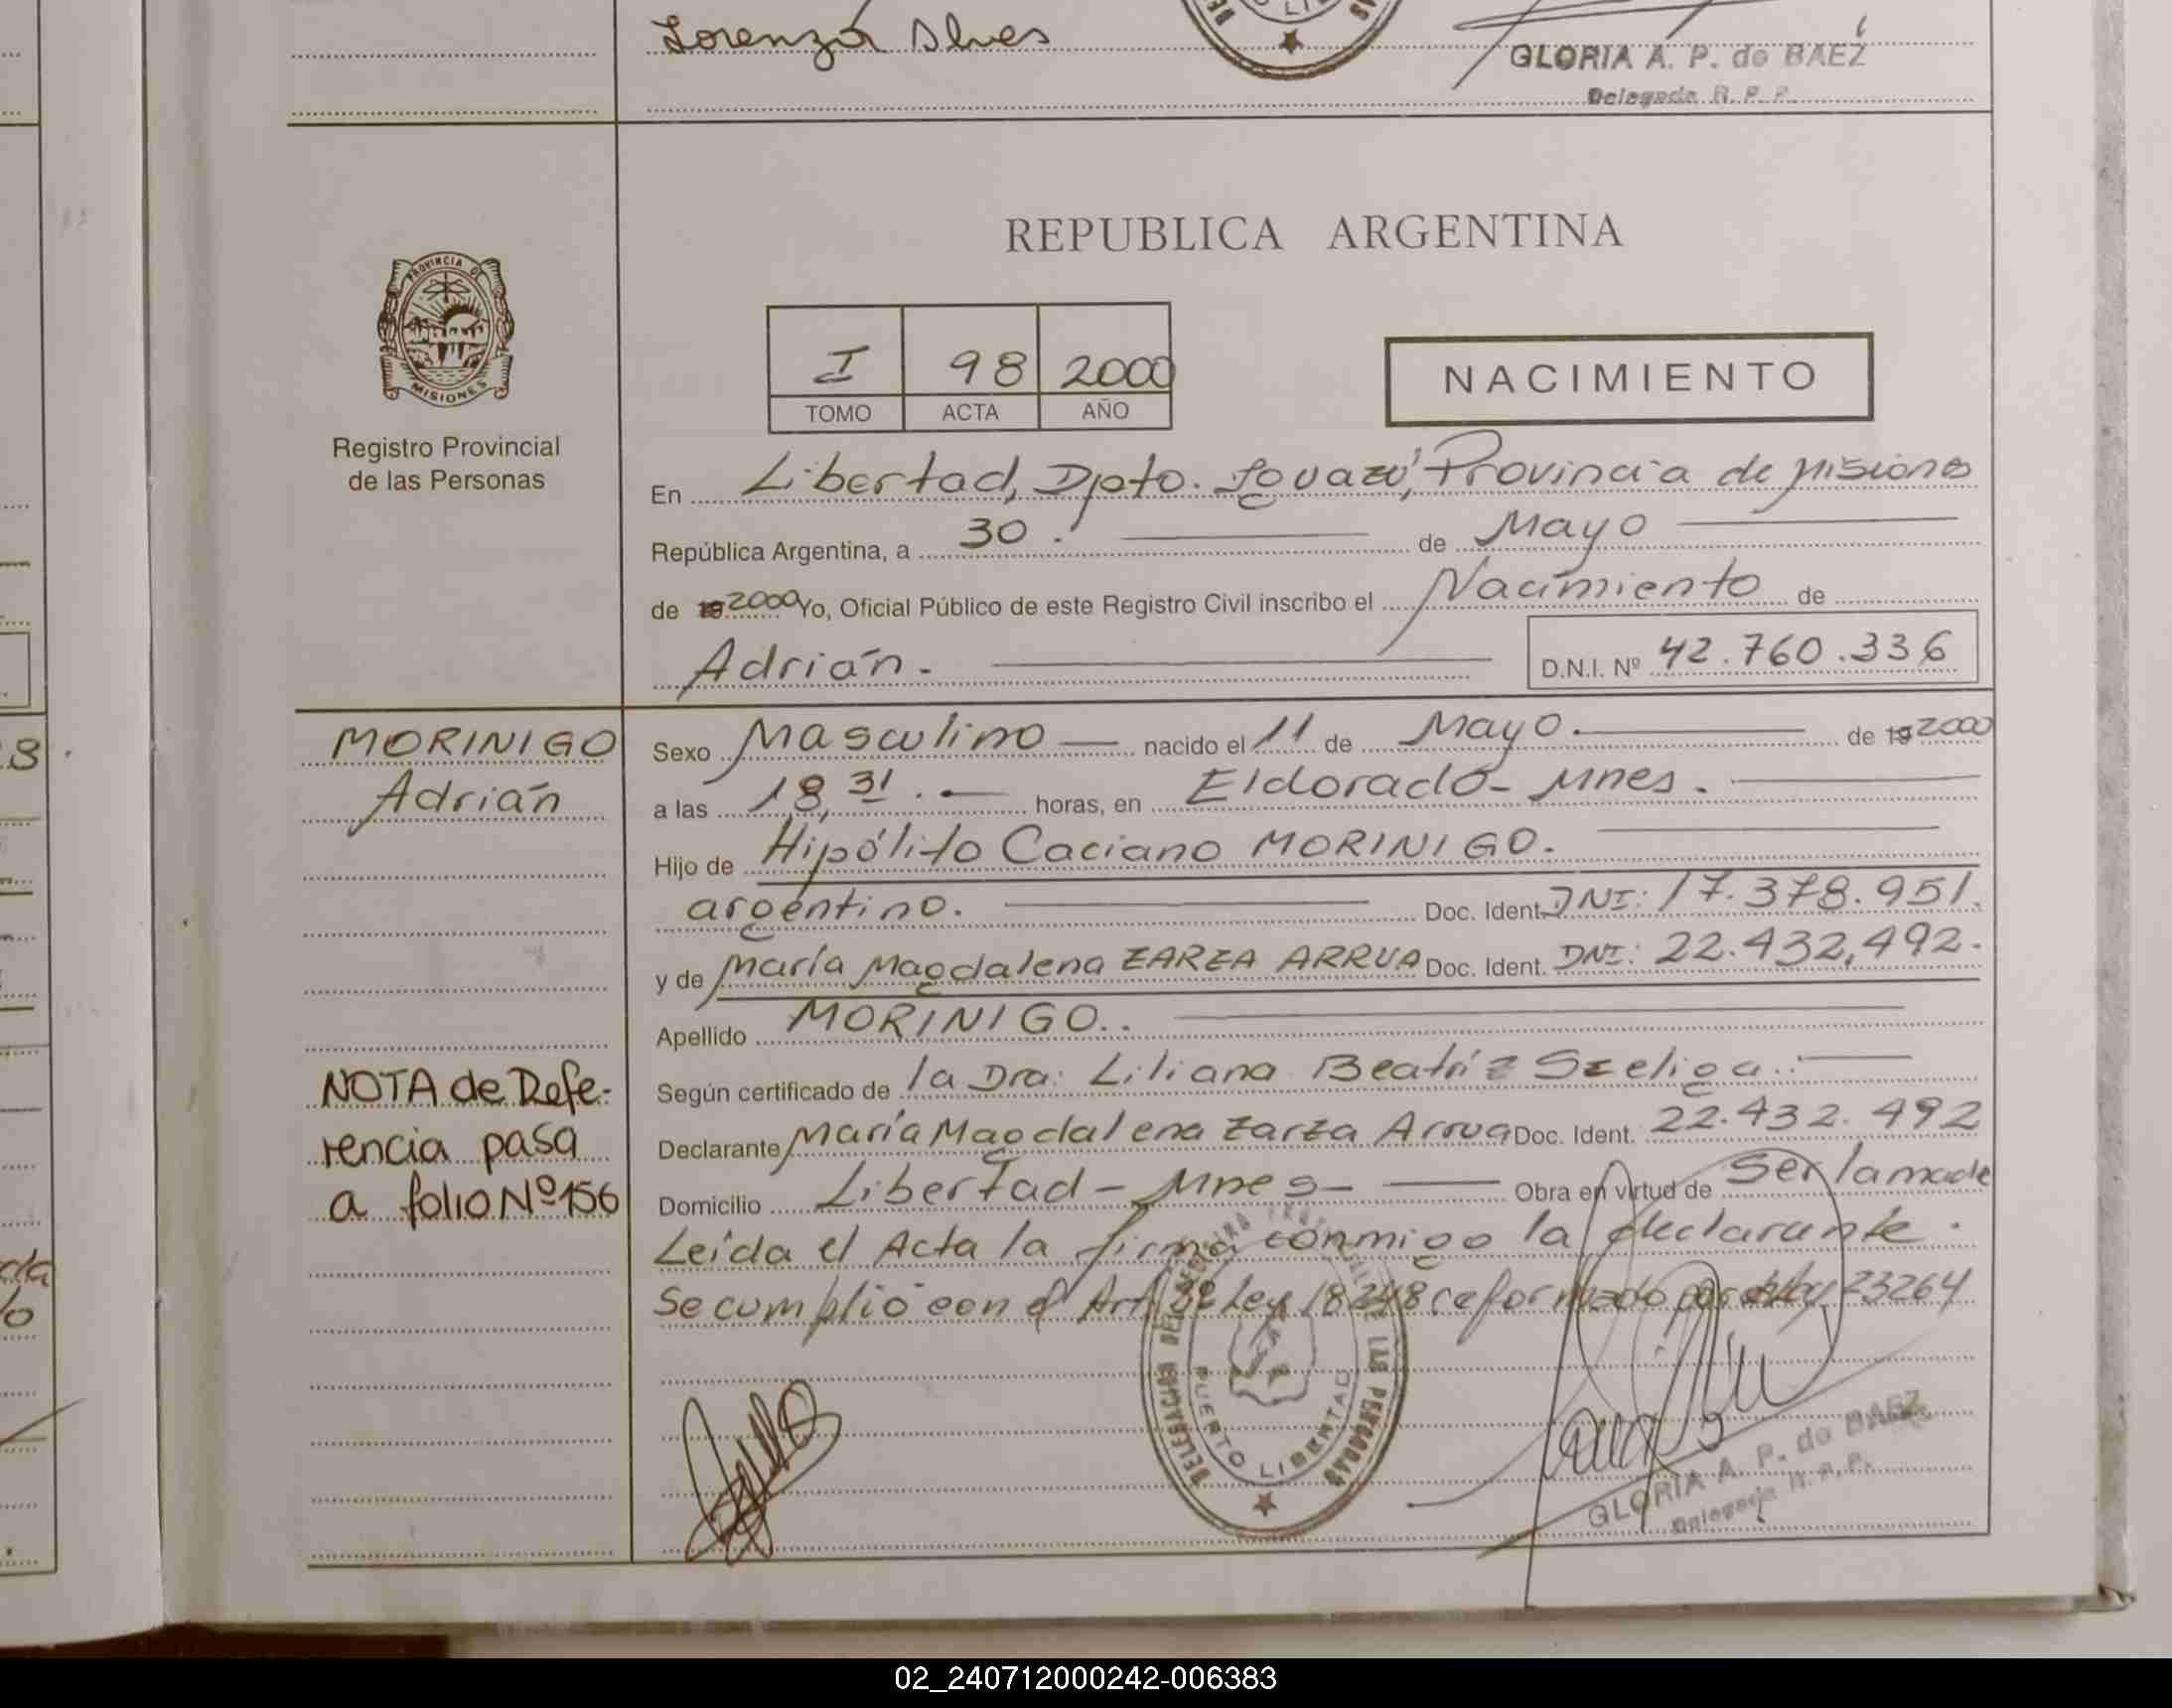 Lorenza Alves
GLORIA A. P. de BAEZ
Delegada R. P. P.
REPUBLICA ARGENTINA
PROVINCIA DE
MISIONES
Registro Provincial
de las Personas
I 98 2000
TOMO ACTA AÑO
NACIMIENTO
En Libertad, Dpto. Iguazú, Provincia de Misiones
República Argentina, a 30. de Mayo
de 19 2000 Yo, Oficial Público de este Registro Civil inscribo el Nacimiento de
Adrián. D.N.I. Nº 42.760.336
MORINIGO
Adrián
Sexo Masculino nacido el 11 de Mayo. de 19 2000
a las 18,31. horas, en Eldorado - Mnes.
Hijo de Hipólito Caciano MORINIGO.
argentino. Doc. Ident. DNI: 17.378.951.
y de María Magdalena ZARZA ARRUA Doc. Ident. DNI: 22.432,492.
Apellido MORINIGO..
Según certificado de la Dra: Liliana Beatríz Szeliga.
Declarante María Magdalena Zarza Arrua Doc. Ident. 22.432.492
Domicilio Libertad - Mnes - Obra en virtud de Ser la madre
Leída el Acta la firma conmigo la declarante.
Se cumplió con el Art. 3º Ley 18248 reformado por Ley 23264
NOTA de Refe-
rencia pasa
a folio Nº 156
PUERTO LIBERTAD
GLORIA A. P. de BAEZ
Delegada R. P. P.
02_240712000242-006383